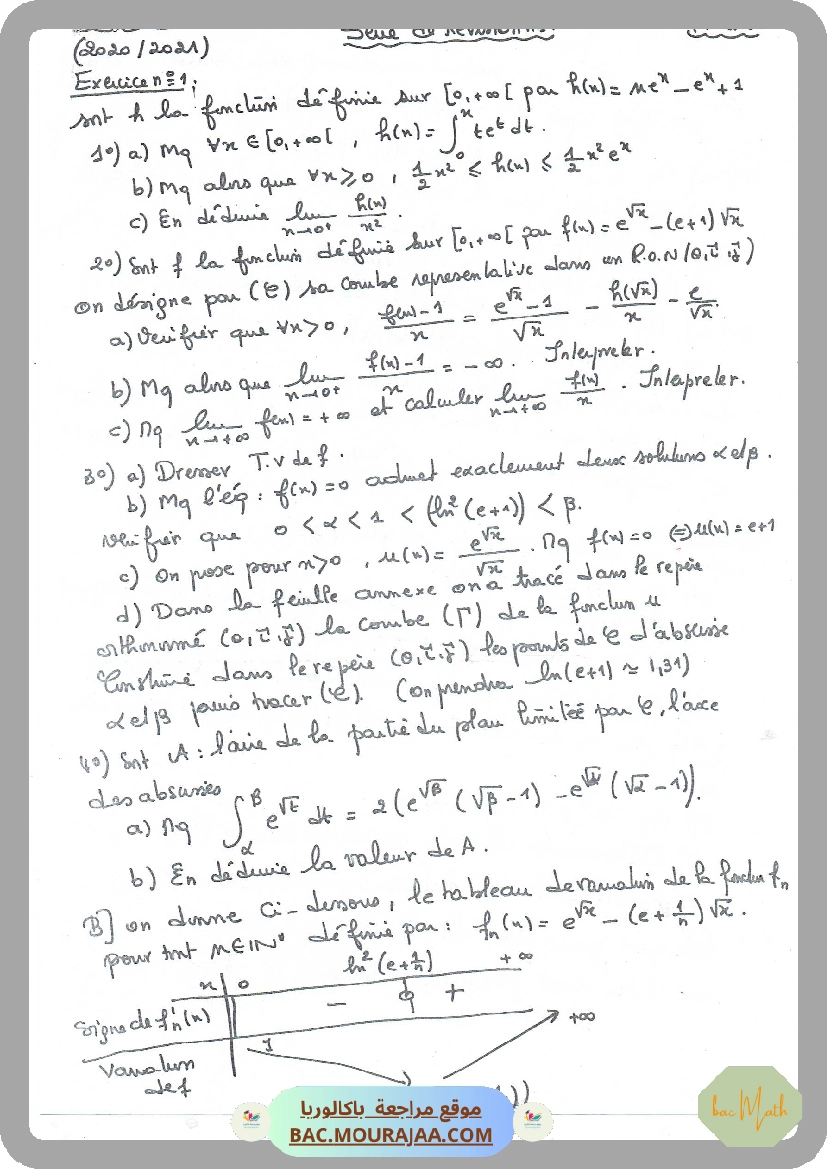 (2020/2021)
Exercice n°1:
soit h la fonction définie sur [0,+∞[ par h(x) = xe^x - e^x + 1
1°) a) Mq ∀x ∈ [0,+∞[ , h(x) = ∫_0^x te^t dt.
b) Mq alors que ∀x ≥ 0 , 1/2 x² ≤ h(x) ≤ 1/2 x² e^x
c) En déduire lim_{x→0+} h(x)/x² .
2°) Soit f la fonction définie sur [0,+∞[ par f(x) = e^√x - (e+1)√x
On désigne par (C) sa courbe representative dans un R.O.N (O,i,j)
a) Verifier que ∀x>0, (f(x)-1)/x = (e^√x - 1)/√x - h(√x)/x - e/√x.
b) Mq alors que lim_{x→0+} (f(x)-1)/x = -∞. Interpreter.
c) Mq lim_{x→+∞} f(x) = +∞ et calculer lim_{x→+∞} f(x)/x . Interpreter.
3°) a) Dresser T.v de f.
b) Mq l'éq : f(x)=0 admet exactement deux solutions α et β.
Vérifier que 0 < α < 1 < (ln²(e+1)) < β.
c) On pose pour x>0, u(x) = e^√x/√x . Mq f(x)=0 ⇔ u(x) = e+1
d) Dans la feuille annexe on a tracé dans le repère
orthonormé (O,i,j) la courbe (Γ) de la fonction u
Construire dans le repère (O,i,j) les points de C d'abscisse
α et β puis tracer (C). (on prendra ln(e+1) ≈ 1,31)
4°) Soit A : l'aire de la partie du plan limitée par C, l'axe
des abscisses
a) Mq ∫_α^β e^√t dt = 2(e^√β (√β-1) - e^√α (√α-1)).
b) En déduire la valeur de A.
B] on donne ci-dessous, le tableau de variation de la fonction f_n
pour tout n∈IN* définie par : f_n(x) = e^√x - (e + 1/n)√x.
x 0 ln²(e+1/n) +∞
Signe de f'_n(x) - 0 +
1 +∞
Variation
de f
))
موقع مراجعة باكالوريا
BAC.MOURAJAA.COM
bac Math